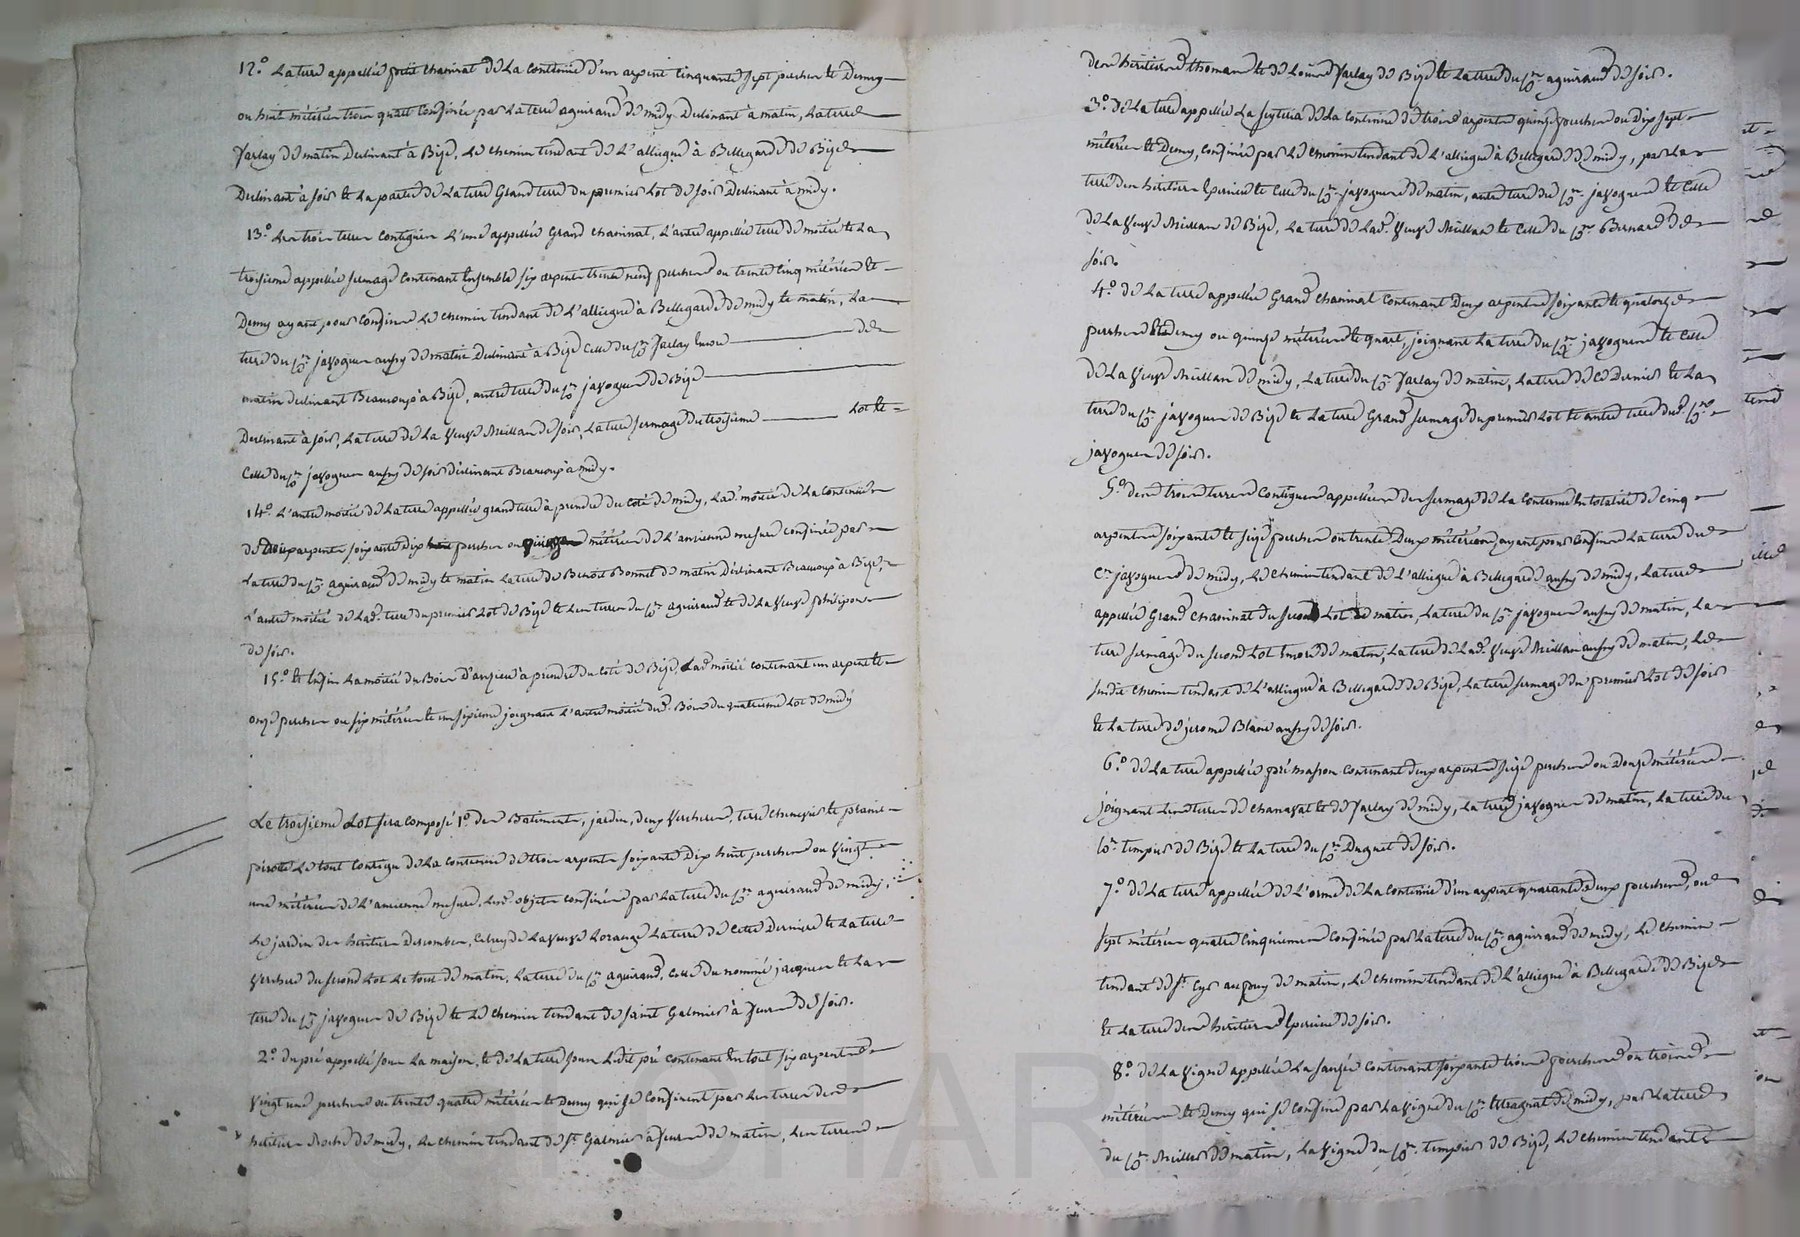 12.° La terre appellée petit chavinat de la contenue d'un arpent cinquante sept perches et demy
ou huit méterées trois quart confinée par la terre aguiraud de midy declinant à matin, la terre
Varlay de matin declinant à Bize, le chemin tendant de L'alliegue à Bellegarde de Bize
Declinant à soir et la partie de la terre Grand terre du premier Lot de soir Declinant à midy.
13.° Les trois terres contigues L'une appellée Grand chavinat, L'autre appellée terre de moitié et la
troisieme appellée fermage contenant Ensemble six arpents trente neuf perches ou trente cinq méterées et
Demy ayant pour confins le chemin tendant de L'alliegue à Bellegarde de midy et matin, la
terre du Cn javogues aussy de matin Declinant à Bize celle du Cn Varlay encore de
matin declinant Beaucoup à Bize, autre terre du Cn javogues de Bize
Declinant à soir, la terre de la Veuve Meillan de soir, la terre fermage du troisieme Lot et
celle du Cn javogues aussy de soir déclinant Beaucoup à midy.
14.° L'autre moitié de la terre appellée grand terre à prendre du coté de midy, lad. moitié de la contenue
de trois arpents soixante dix perches ou méterées de l'ancienne mesure confinée par
la terre du Cn aguiraud de midy et matin la terre de Benoit Bonnet de matin Déclinant Beaucoup à Bize,
L'autre moitié de lad. terre du premier Lot de Bize et les terres du Cn aguiraud et de la Veuve philipon
de soir.
15.° Et Enfin la moitié du Bois D'anzieu à prendre du coté de Bize, Lad. moitié contenant un arpent et
onze perches ou six méterées et un sixieme joignant L'autre moitié dud. Bois du quatrieme Lot de midy
Le troisieme Lot sera composé 1.° des Batiments, jardin, deux Vercheres, terre chenevier et
Le tout contigu de la contenue de trois arpents soixante Dix huit perches ou Vingt
une méterées de l'ancienne mesure, Lesd. objets confinés par la terre du Cn aguiraud de midy,
Le jardin des heritiers Descombes, celuy de la Veuve Lorange la terre de cette Derniere et la terre
Verchere du second Lot le tout de matin, la terre du Cn aguiraud, celle du nommé jacques et la
terre du Cn javogues de Bize et le chemin tendant de saint Galmier à feurs de soir.
2.° du pré appellé sous la maison, et de la terre sous Ledit pré contenant En tout six arpents
Vingt une perches ou trente quatre méterées et Demy qui se confinent par les terres des
heritiers Roche de midy, Le chemin tendant de St. Galmier à feurs de matin, les terres
des heritiers thomas et de Louis Varlay de Bize et la terre du Cn aguiraud de soir.
3.° de la terre appellée La seytéria de la contenue de trois arpents quinze perches ou Dix sept
méterées et Demy, confinée par le chemin tendant de L'alliegue à Bellegarde de midy, par la
terre des heritiers Epervier et celle du Cn javogues de matin, autre terre du Cn javogues et celle
de la Veuve Meillan de Bize, la terre de lad. Veuve Meillan et celle du Cn Bernard de
soir.
4.° de la terre appellée Grand chavinat contenant Deux arpents soixante et quatorze
perches et demy ou quinze méterées et quart, joignant la terre du Cn javogues et celle
de la Veuve Meillan de midy, la terre du Cn Varlay de matin, la terre de ce Dernier et la
terre du Cn javogues de Bize et la terre Grand fermage du premier Lot et autre terre dud. Cn
javogues de soir.
5.° des trois terres contigues appellées des fermage de la contenue En totalité de cinq
arpents soixante et seize perches ou trente Deux méterées, ayant pour confins la terre du
Cn javogues de midy, le chemin tendant de L'alliegue à Bellegarde aussy de midy, la terre
appellée Grand chavinat du second Lot de matin, la terre du Cn javogues aussy de matin, la
terre fermage du second Lot encore de matin, la terre de lad. Veuve Meillan aussy de matin, le
susdit chemin tendant de L'alliegue à Bellegarde de Bize, la terre fermage du premier Lot de soir
et la terre de jerome Blanc aussy de soir.
6.° de la terre appellée pré masson contenant deux arpents seize perches ou Douze méterées
joignant les terres de chanavat et de Varlay de midy, la terre javogues de matin, la terre du
Cn tempier de Bize et la terre du Cn Duguet de soir.
7.° de la terre appellée de L'orme de la contenue d'un arpent quarante deux perches, ou
sept méterées quatre cinquiemes confinée par la terre du Cn aguiraud de midy, le chemin
tendant de St. Cyr au puy de matin, le chemin tendant de L'alliegue à Bellegarde de Bize
et la terre des heritiers Epervier de soir.
8.° de la Vigne appellée la contenant soixante trois perches ou trois
méterées et Demy qui se confine par la Vigne du Cn de midy, par la terre
du Cn Meiller de matin, la Vigne du Cn tempier de Bize, le chemin tendant